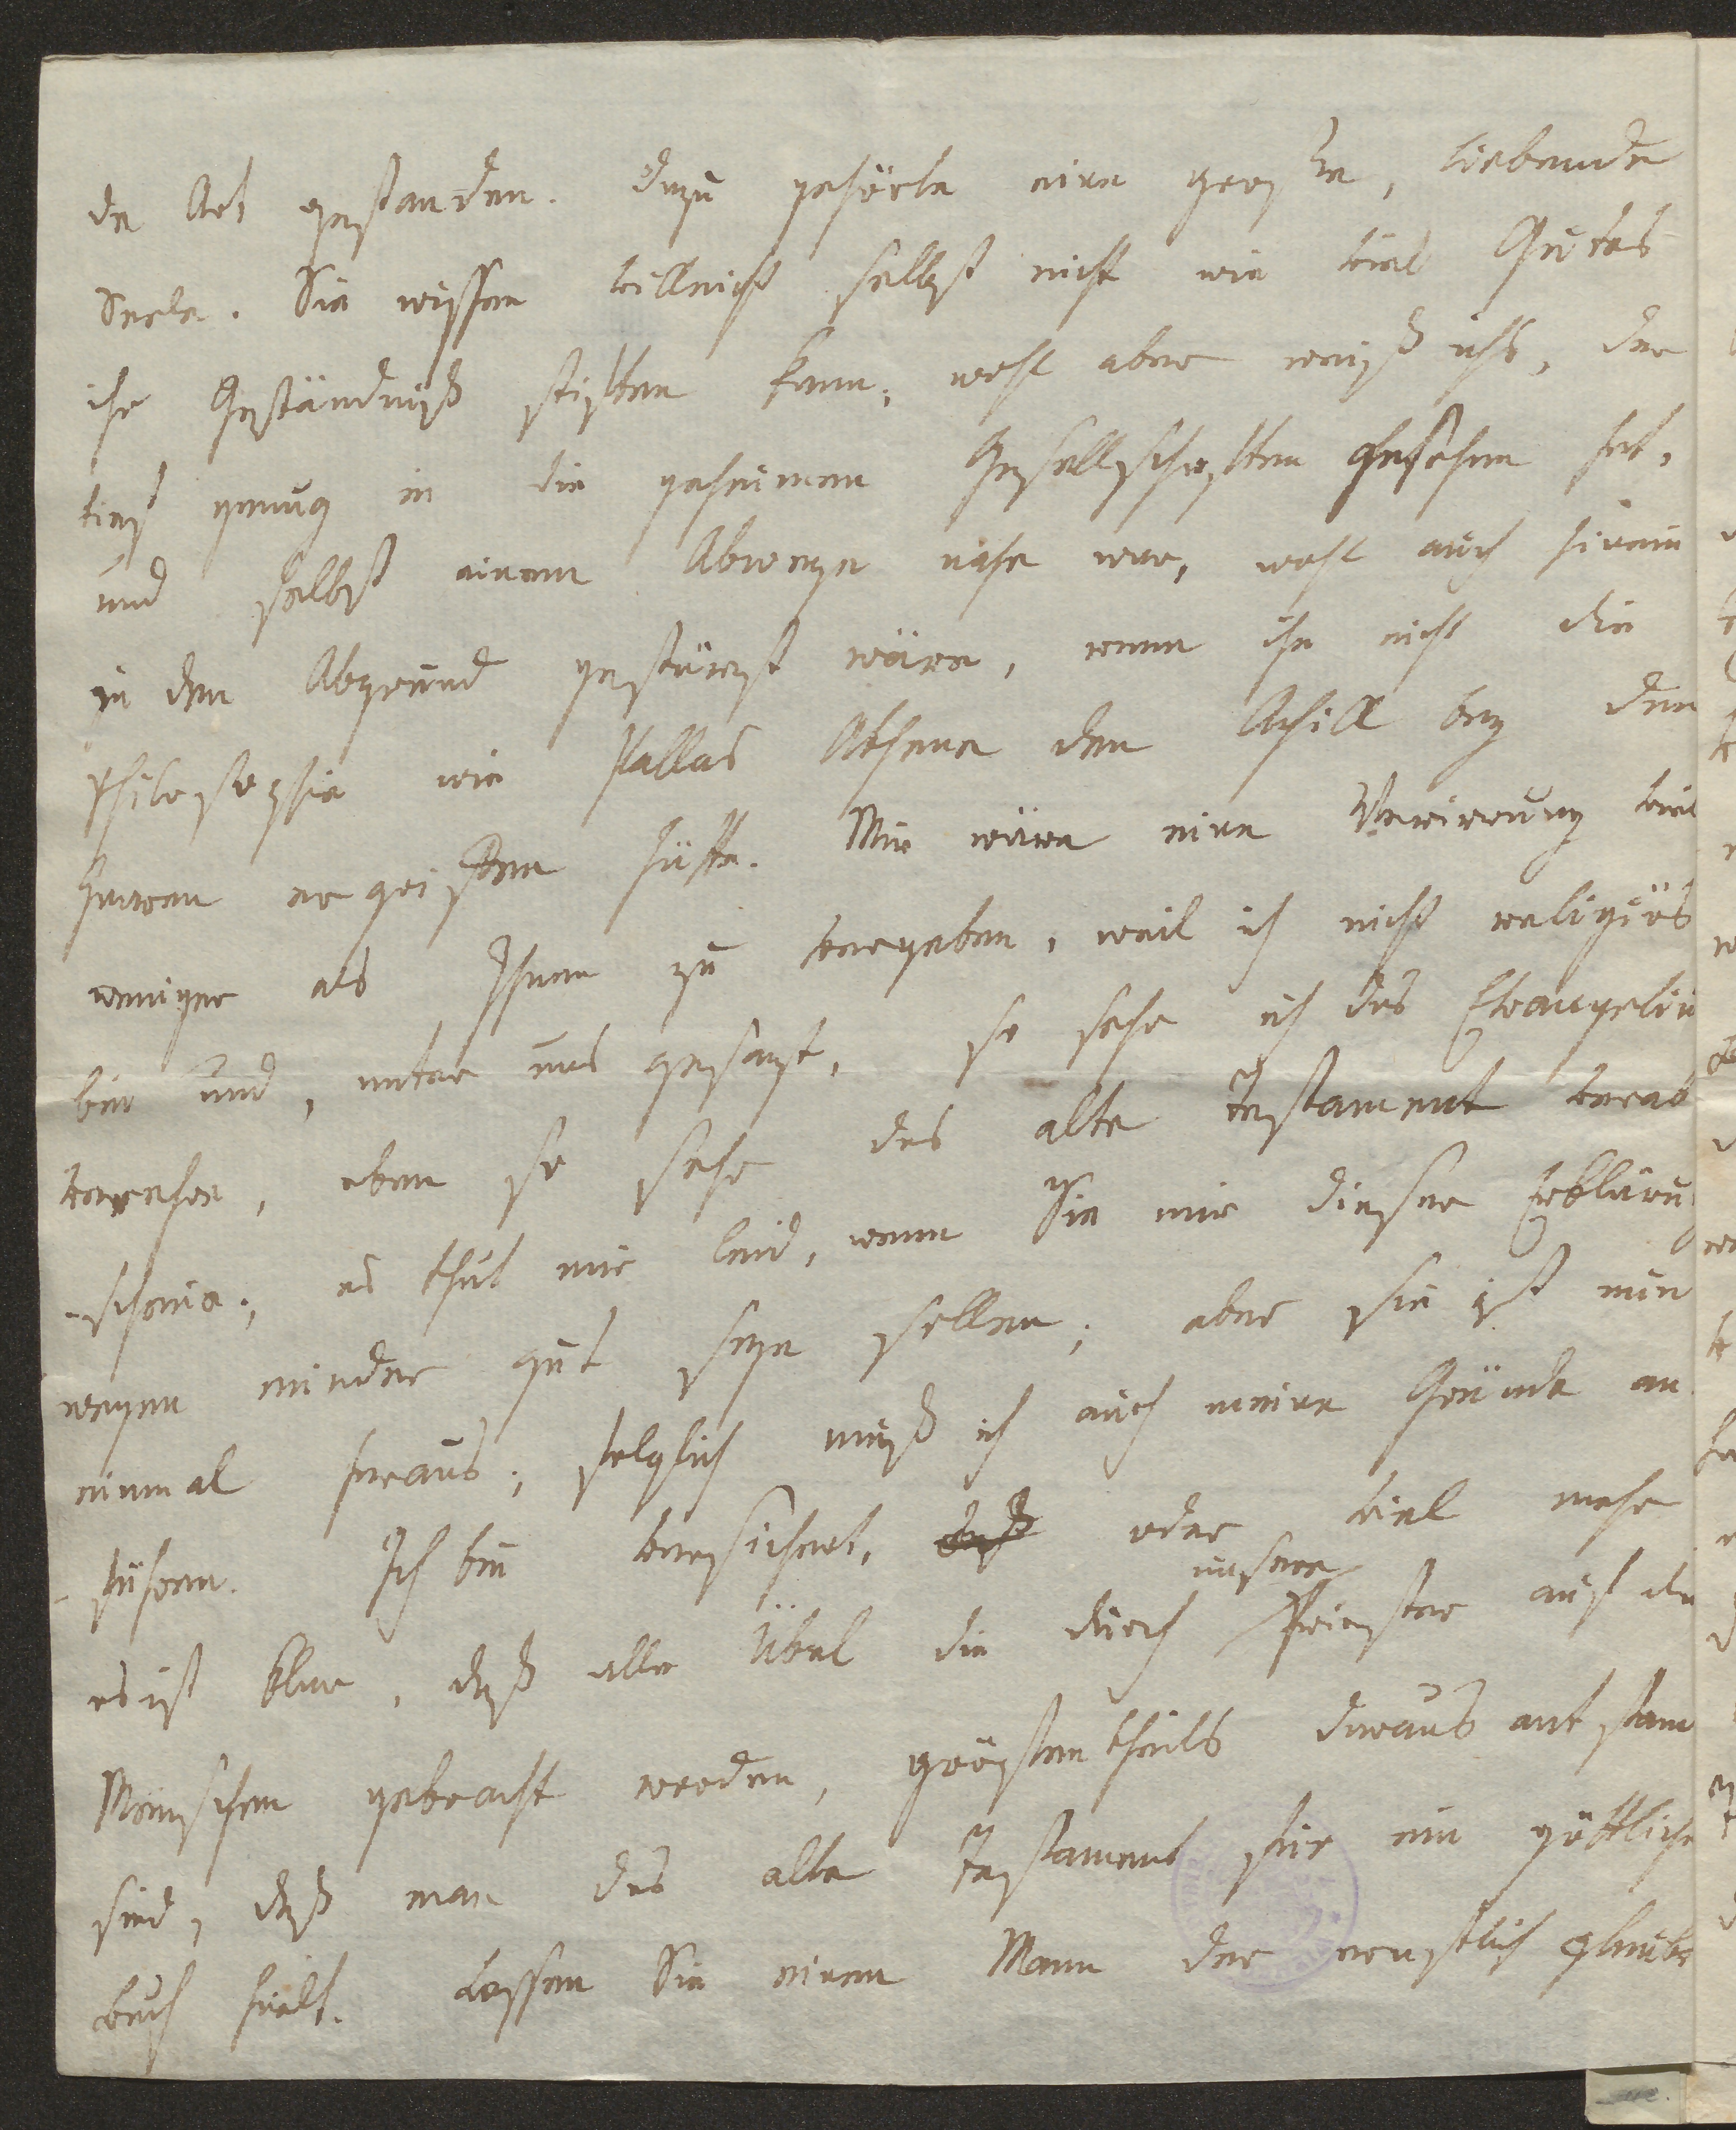 der Art gestanden. Dazu gehörte eine große, liebende
Seele. Sie wissen villeicht selbst nicht wie viel Gutes
ihr Geständniß stifften kann; wohl aber weiß ichs, der
tief genug in die geheimen Gesellschafften gesehen hat,
und selbst einem Abwege nahe war, wohl auch hinein
in den Abgrund gestürzt wäre, wenn ihn nicht die
Philosophie wie Pallas Athene den Achill bey den
Haaren ergriffen hätte. Mir wäre eine Verirrung viel
weniger als Ihnen zu vergeben, weil ich nicht religiös
bin und, unter uns gesagt, so sehr ich das Evangeliu
verehre, eben so sehr das alte Testament verab
-scheue; es thut mir leid, wenn Sie mir dieser Erkläru
wegen minder gut seyn sollten; aber sie ist nun
einmal heraus; folglich muß ich auch meine Gründe an
-führen. Ich bin versichert, daß oder viel mehr
es ist klar, daß alle Übel die durch unsere Priester auf die
Menschen gebracht werden, größtentheils daraus entstan
sind, daß man das alte Testament für ein göttliche
buch hielt. Lassen Sie einen Mann der ernstlich glaubt